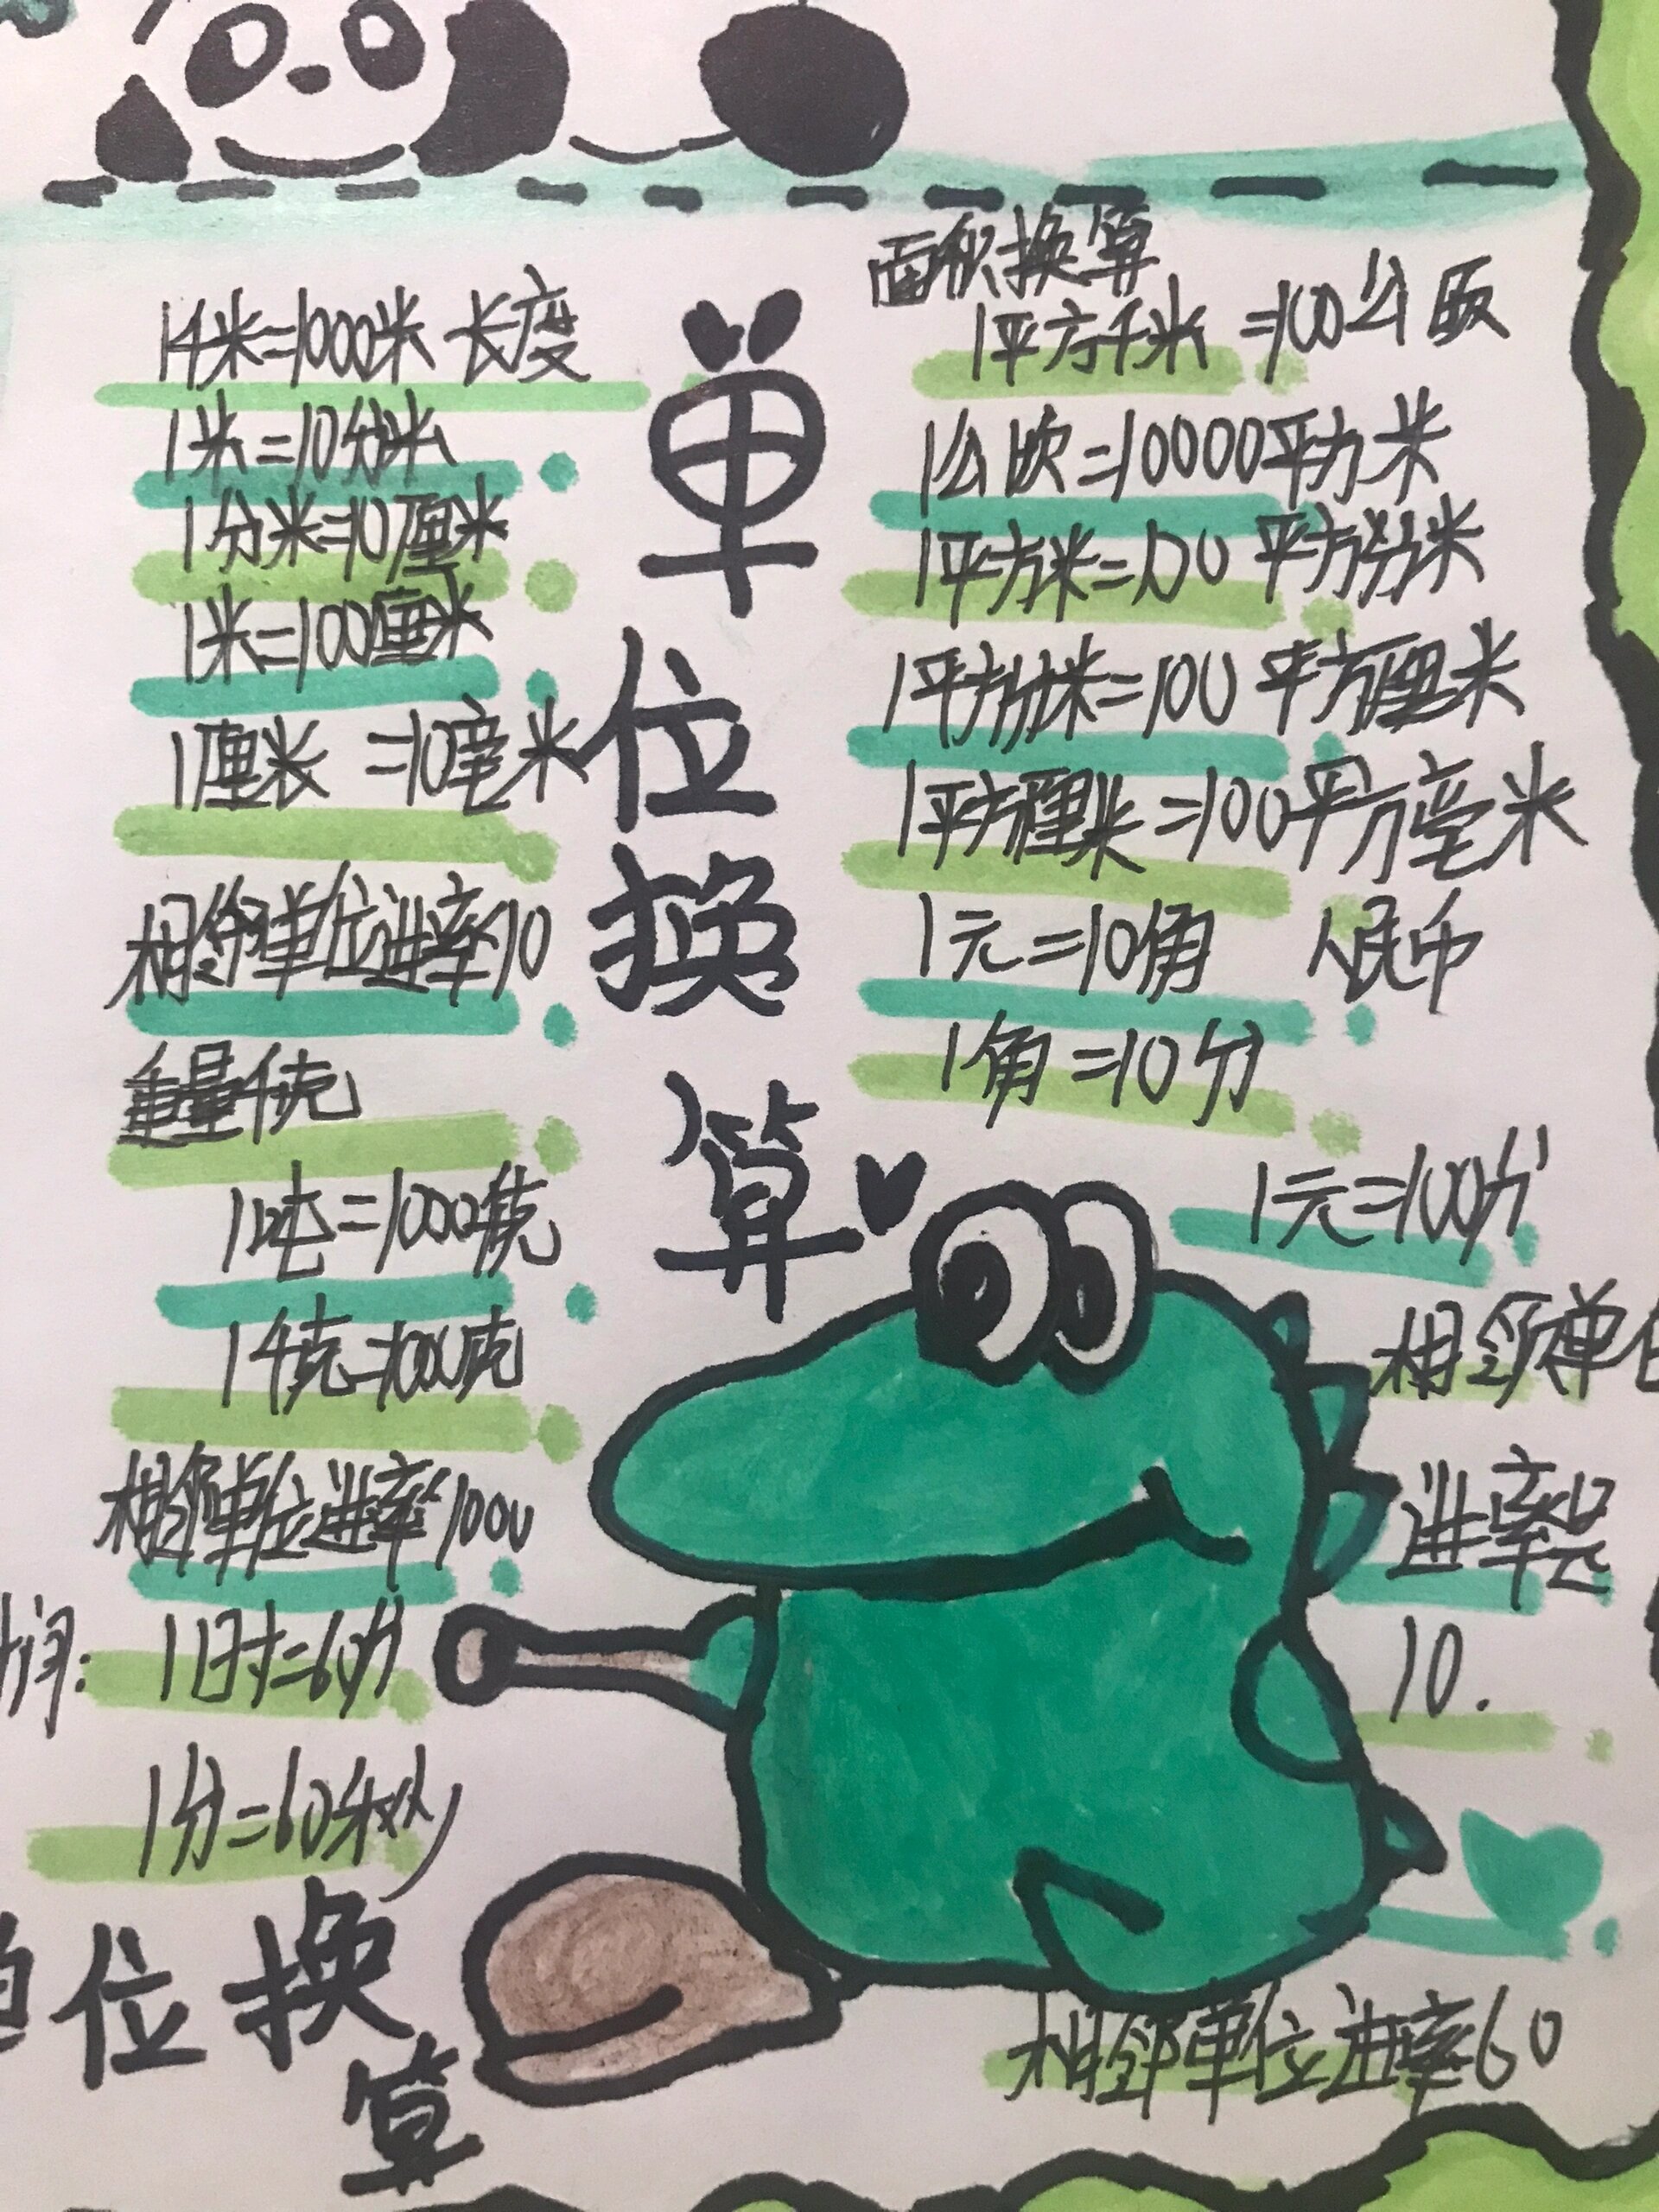 1千米=1000米 长度
1米=10分米
1分米=10厘米
1米=100厘米
1厘米 =10毫米
相邻单位进率10
重量千克
1吨=1000千克
1千克=1000克
相邻单位进率1000
时间:1时=60分
1分=60秒
单位换算
单
位
换
算
面积换算
1平方千米 =100公顷
1公顷=10000平方米
1平方米=100平方分米
1平方分米=100平方厘米
1平方厘米=100平方毫米
1元=10角 人民币
1角=10分
1元=100分
相邻单位
进率是
10.
相邻单位进率60